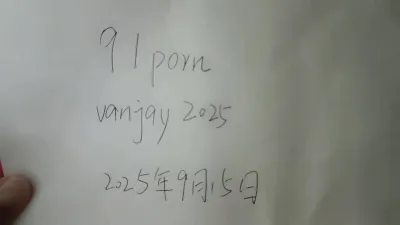 91 porn
vanjay 2025
2025年9月15日